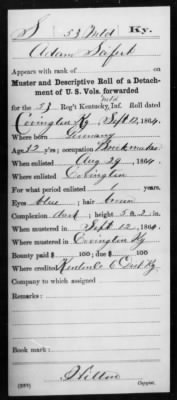 S 53 Mtd Ky.
Adam Seifert
Appears with rank of
Muster and Descriptive Roll of a Detach-
ment of U. S. Vols. forwarded
for the 53 Reg't Kentucky, Inf. Mtd Roll dated
Covington Ky Sept 12, 1864.
Where born Germany
Age 32 y'rs; occupation
When enlisted Aug 29, 1864.
Where enlisted Covington
For what period enlisted 1 years.
Eyes blue; hair
Complexion dark; height 5 ft. 2 in.
When mustered in Sept 12, 1864.
Where mustered in Covington Ky
Bounty paid $ 100; due $ 100
Where credited Kenton Co 6 Dist Ky
Company to which assigned
Remarks:
Book mark:
Hilton
Copyist.